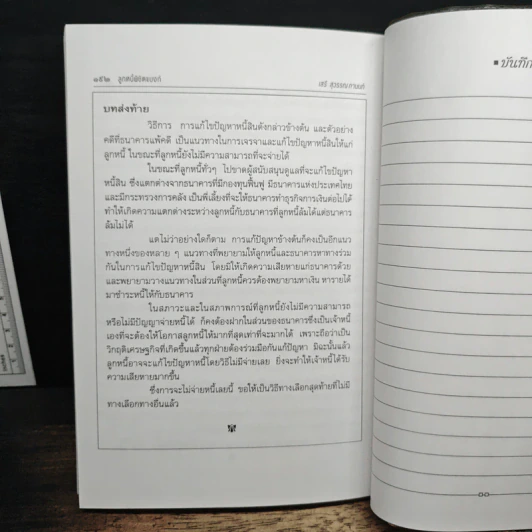 ๑๕๒ ลูกหนี้พิชิตแบงก์
เสรี สุวรรณภานนท์
บทส่งท้าย
วิธีการ การแก้ไขปัญหาหนี้สินดังกล่าวข้างต้น และตัวอย่าง
คดีที่ธนาคารแพ้คดี เป็นแนวทางในการเจรจาและแก้ไขปัญหาหนี้สินให้แก่
ลูกหนี้ ในขณะที่ลูกหนี้ยังไม่มีความสามารถที่จะจ่ายได้
ในขณะที่ลูกหนี้ทั่วๆ ไปขาดผู้สนับสนุนดูแลที่จะแก้ไขปัญหา
หนี้สิน ซึ่งแตกต่างจากธนาคารที่มีกองทุนฟื้นฟู มีธนาคารแห่งประเทศไทย
และมีกระทรวงการคลัง เป็นพี่เลี้ยงที่จะให้ธนาคารทำธุรกิจการเงินต่อไปได้
ทำให้เกิดความแตกต่างระหว่างลูกหนี้กับธนาคารที่ลูกหนี้ล้มได้แต่ธนาคาร
ล้มไม่ได้
แต่ไม่ว่าอย่างใดก็ตาม การแก้ปัญหาข้างต้นก็คงเป็นอีกแนว
ทางหนึ่งของหลาย ๆ แนวทางที่พยายามให้ลูกหนี้และธนาคารหาทางร่วม
กันในการแก้ไขปัญหาหนี้สิน โดยมิให้เกิดความเสียหายแก่ธนาคารด้วย
และพยายามวางแนวทางในส่วนที่ลูกหนี้ควรต้องพยายามหาเงิน หารายได้
มาชำระหนี้ให้กับธนาคาร
ในสภาวะและในสภาพการณ์ที่ลูกหนี้ยังไม่มีความสามารถ
หรือไม่มีปัญญาจ่ายหนี้ได้ ก็คงต้องฝากในส่วนของธนาคารซึ่งเป็นเจ้าหนี้
เองที่จะต้องให้โอกาสลูกหนี้ให้มากที่สุดเท่าที่จะมากได้ เพราะถือว่าเป็น
วิกฤติเศรษฐกิจที่เกิดขึ้นแล้วทุกฝ่ายต้องร่วมมือกันแก้ปัญหา มิฉะนั้นแล้ว
ลูกหนี้อาจจะแก้ไขปัญหาหนี้โดยวิธีไม่มีจ่ายเลย ยิ่งจะทำให้เจ้าหนี้ได้รับ
ความเสียหายมากขึ้น
ซึ่งการจะไม่จ่ายหนี้เลยนี้ ขอให้เป็นวิธีทางเลือกสุดท้ายที่ไม่มี
ทางเลือกทางอื่นแล้ว
บันทึก